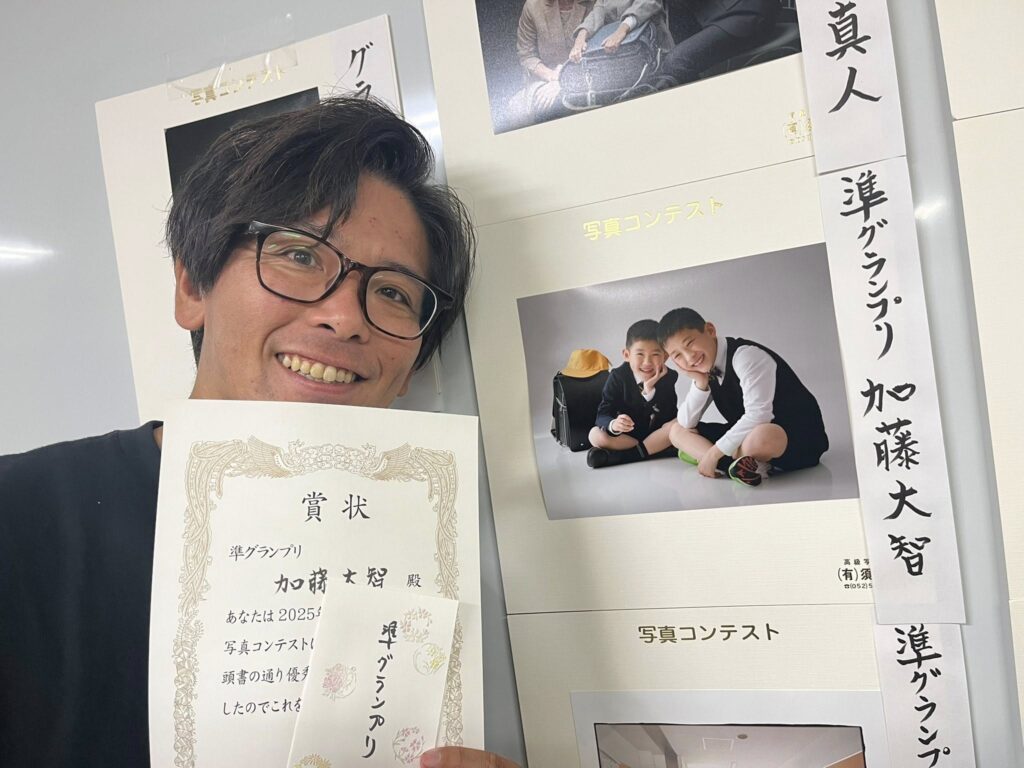 写真コンテスト
グラ
真人
写真コンテスト
準グランプリ 加藤大智
(有)須
写真コンテスト
準グランプ
賞状
準グランプリ
加藤大智 殿
あなたは2025年
写真コンテストに
頭書の通り優秀
したのでこれを
準グランプリ